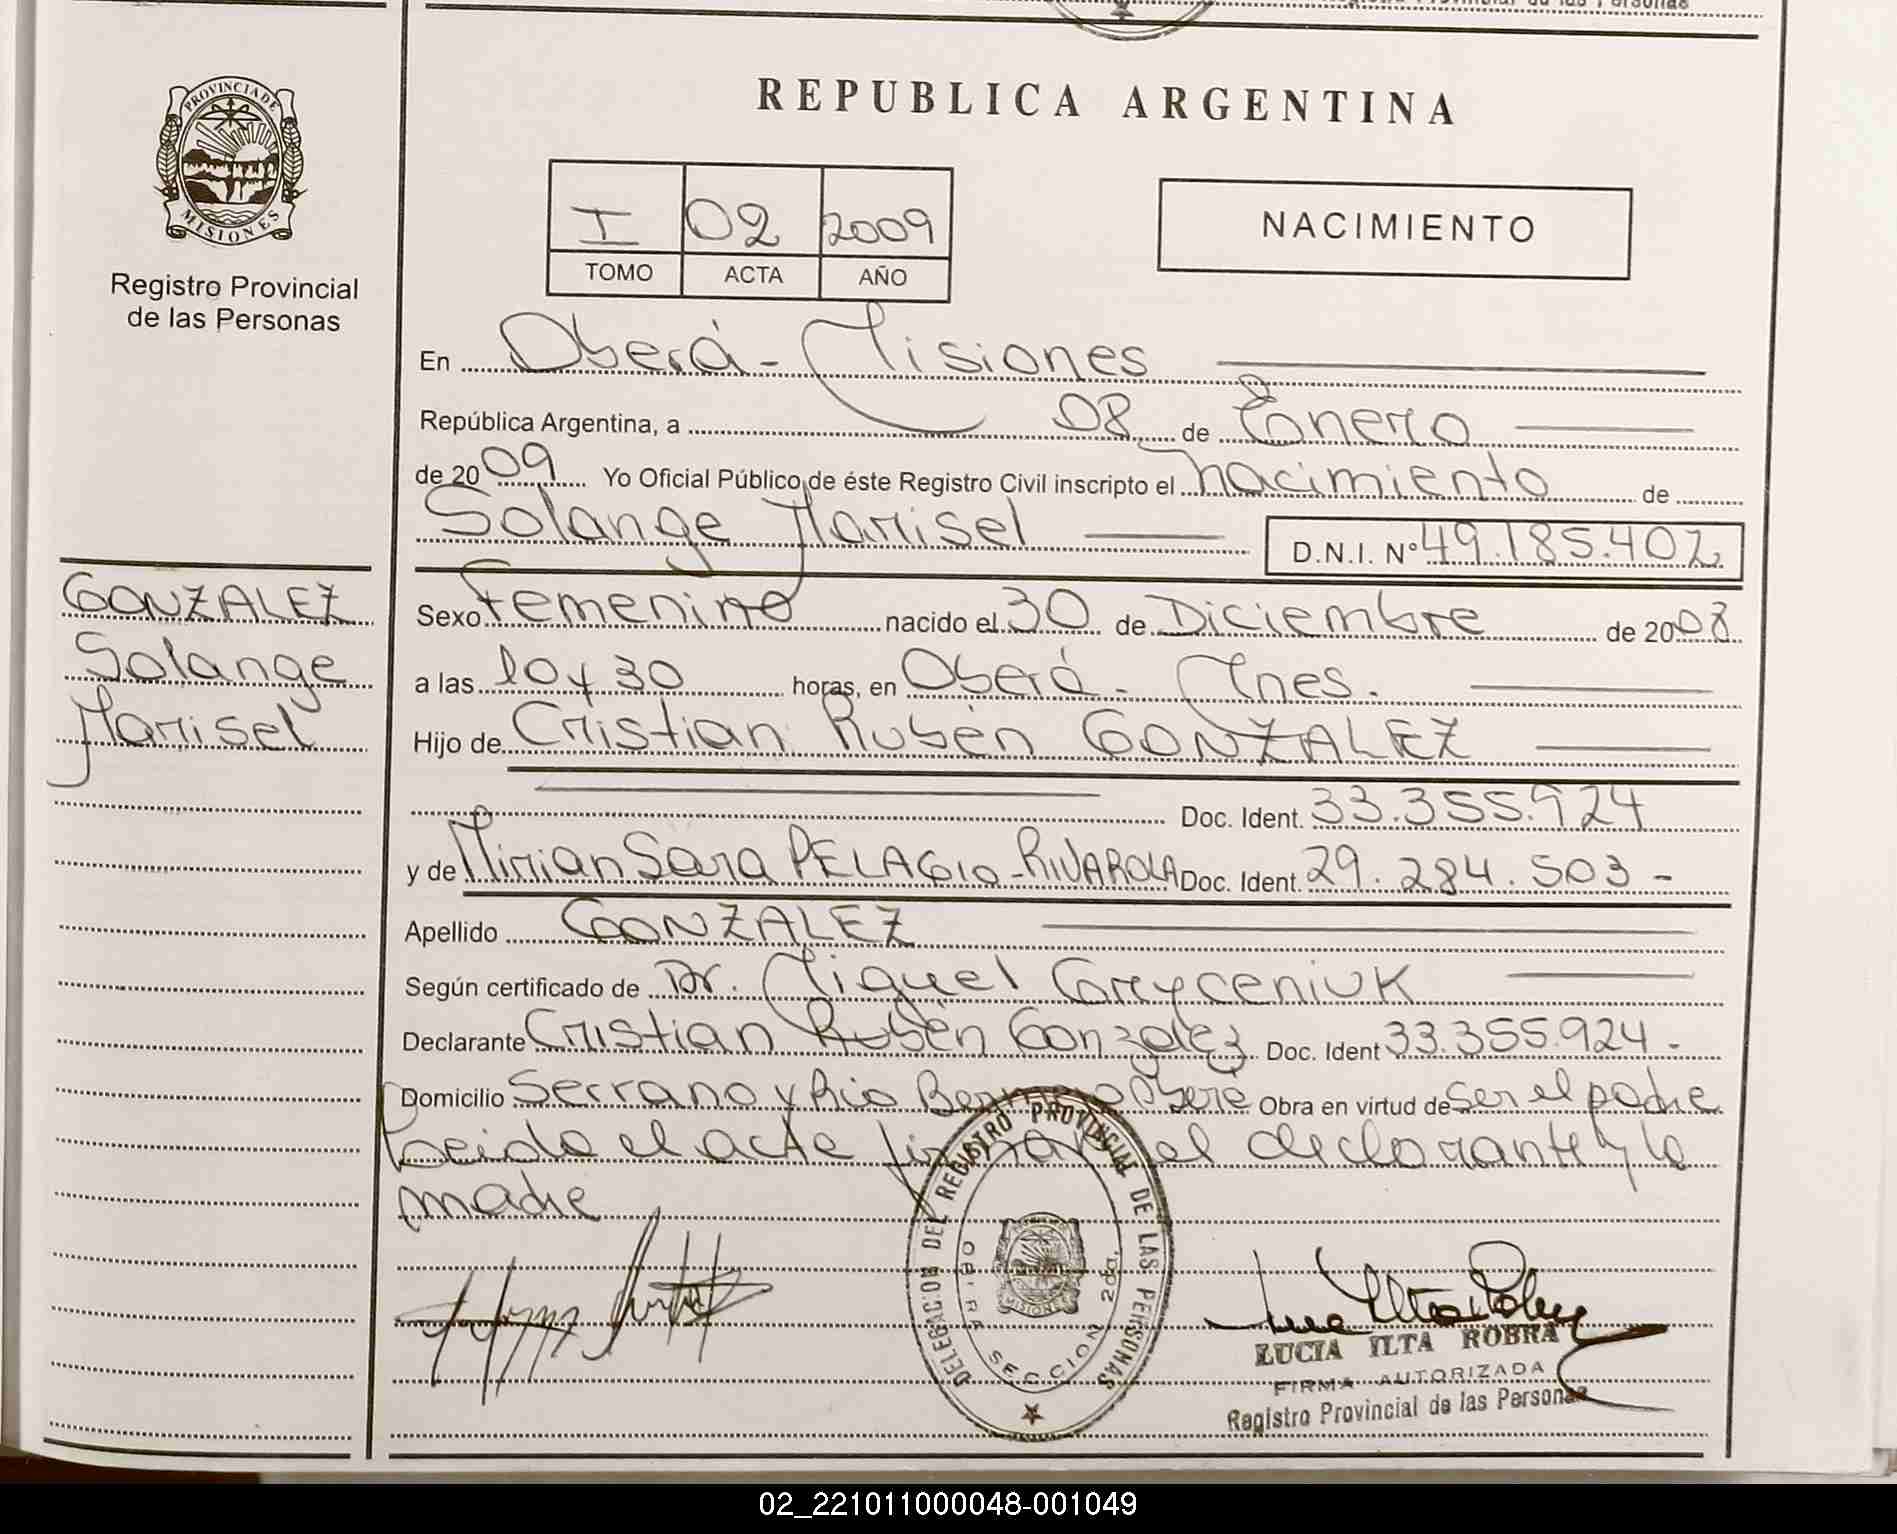 REPUBLICA ARGENTINA
PROVINCIA DE
MISIONES
Registro Provincial
de las Personas
I 02 2009
TOMO ACTA AÑO
NACIMIENTO
En Oberá - Misiones
República Argentina, a 08 de Enero
de 2009 Yo Oficial Público de éste Registro Civil inscripto el nacimiento de
Solange Marisel D.N.I. Nº 49.185.402
GONZALEZ
Solange
Marisel
Sexo Femenino nacido el 30 de Diciembre de 2008
a las 10 y 30 horas, en Oberá - Mnes.
Hijo de Cristian Rubén GONZALEZ
Doc. Ident. 33.355.924
y de Mirian Sara PELAGIO - RIVAROLA Doc. Ident. 29.284.503 -
Apellido GONZALEZ
Según certificado de Dr. Miguel
Declarante Cristian Rubén Gonzalez Doc. Ident 33.355.924 -
Domicilio Serrano y Río Oberá Obra en virtud de ser el padre
Leida el acta firman el declarante y la
madre
DELEGACION DEL REGISTRO PROVINCIAL DE LAS PERSONAS
OBERA SECCION 2da.
MISIONES
LUCIA ILTA ROBRA
FIRMA AUTORIZADA
Registro Provincial de las Personas
02_221011000048-001049